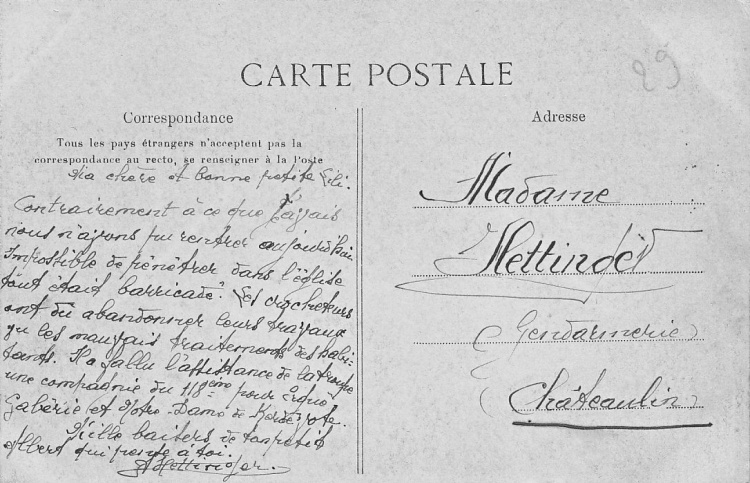 29
CARTE POSTALE
Correspondance
Tous les pays étrangers n'acceptent pas la
correspondance au recto, se renseigner à la Poste
Ma chère et bonne petite Lili.
Contrairement à ce que j'avais
nous n'avons pu rentrer aujourd'hui
Impossible de pénétrer dans l'église
tout était barricadé. Les crocheteurs
ont du abandonner leurs travaux
vu les mauvais traitements des habi-
tants. Il a fallu l'assistance de la troupe
une compagnie du 118ème pour Ergué
Gabéric et Notre-Dame de Kerdévote.
Mille baisers de ton petit
Albert qui pense à toi.
AHettinger
Adresse
Madame
Gendarmerie
Châteaulin